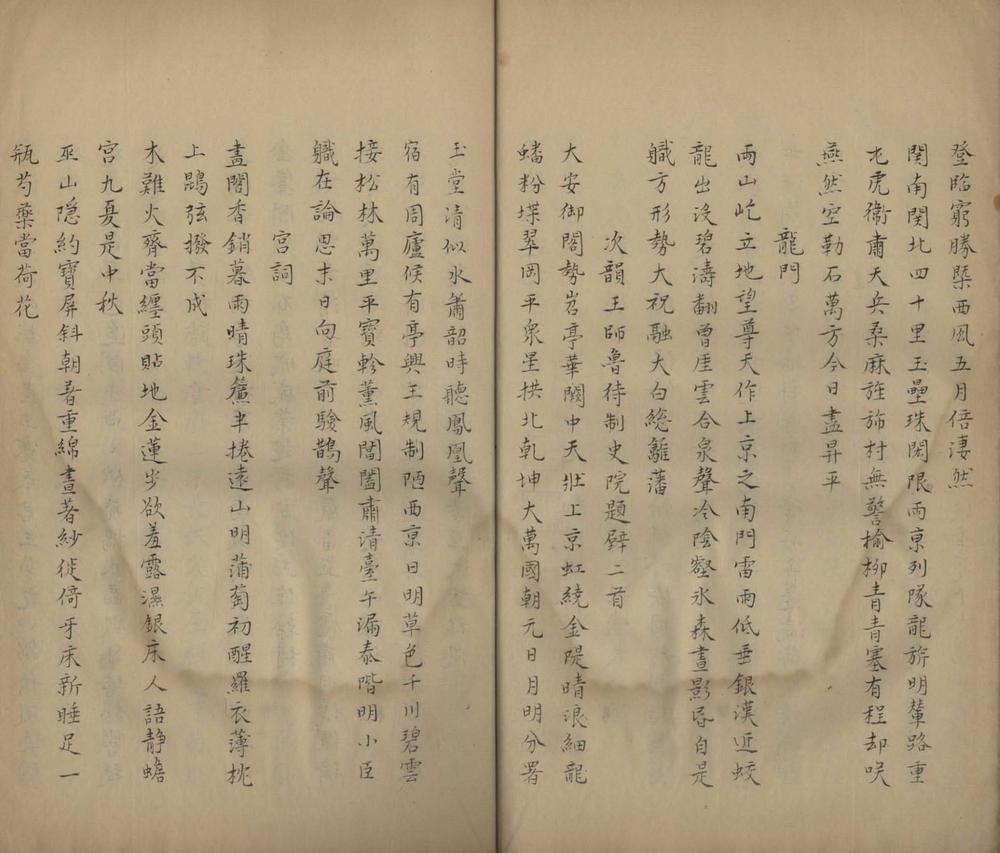 登臨窮勝槩西風五月倍凄然
関南関北四十里玉壘珠関限兩京列隊龍旂明輦路重
屯虎衛肅天兵桑麻旌斾村無警榆柳青青塞有程却咲
燕然空勒石萬方今日盡昇平
龍門
兩山屹立地望尊天作上京之南門雷雨低垂銀漢近蛟
龍出没碧濤翻曽厓雲合泉聲冷陰壑氷森晝影昏自是
軄方形勢大祝融大白緫離藩
次韻王師魯待制史院題壁二首
大安御閣勢岧亭華闕中天壯上京虹繞金隄晴浪細龍
蟠粉堞翠岡平衆星拱北乾坤大萬國朝元日月明分署
玉堂清似水蕭韶時聽鳳凰聲
宿有周廬候有亭興王規制陋西京日明草色千川碧雲
接松林萬里平寶軫薰風閶闔肅清臺午漏泰階明小臣
軄在論思末日向庭前驗鵲聲
宮詞
畫閣香銷暮雨晴珠簾半捲遠山明蒲萄初醒羅衣薄枕
上鵾弦撥不成
木難火齊當纏頭貼地金蓮步欲羞露濕銀床人語静蟾
宮九夏是中秋
巫山隱約寶屏斜朝著重綿晝著紗徙倚牙床新睡足一
瓶芍藥當荷花